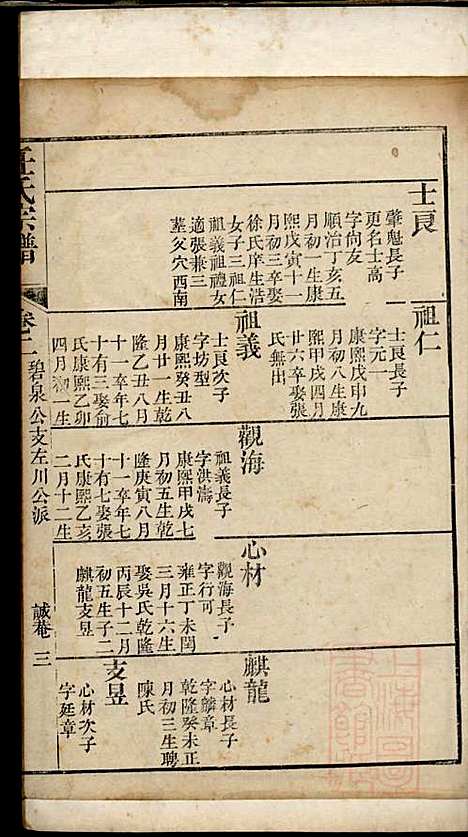 士良
肇魁長子
更名士高
字尙友
順治丁亥五
月初一生康
熙戊寅十一
月初三卒娶
徐氏庠生浩
女子三祖仁
祖義祖禮女
適張兼三
塟父穴西南
祖仁
士良長子
字元一
康熙戊申九
月初八生康
熙甲戌四月
廿六卒娶張
氏無出
祖義
士良次子
字坊型
康熙癸丑八
月廿一生乾
隆乙丑八月
十一卒年七
十有三娶俞
氏康熙乙卯
四月初一生
觀海
祖義長子
字洪濤
康熙甲戌七
月初五生乾
隆庚寅八月
十一卒年七
十有七娶張
氏康熙乙亥
二月十二生
心材
觀海長子
字行可
雍正丁未閏
三月十六生
娶吳氏乾隆
丙辰十二月
初五生子二
麒龍支昱
麒龍
心材長子
字麟章
乾隆癸未正
月初三生聘
陳氏
支昱
心材次子
字廷章
氏宗譜
卷二
碧泉公支左川公派
誠菴
三